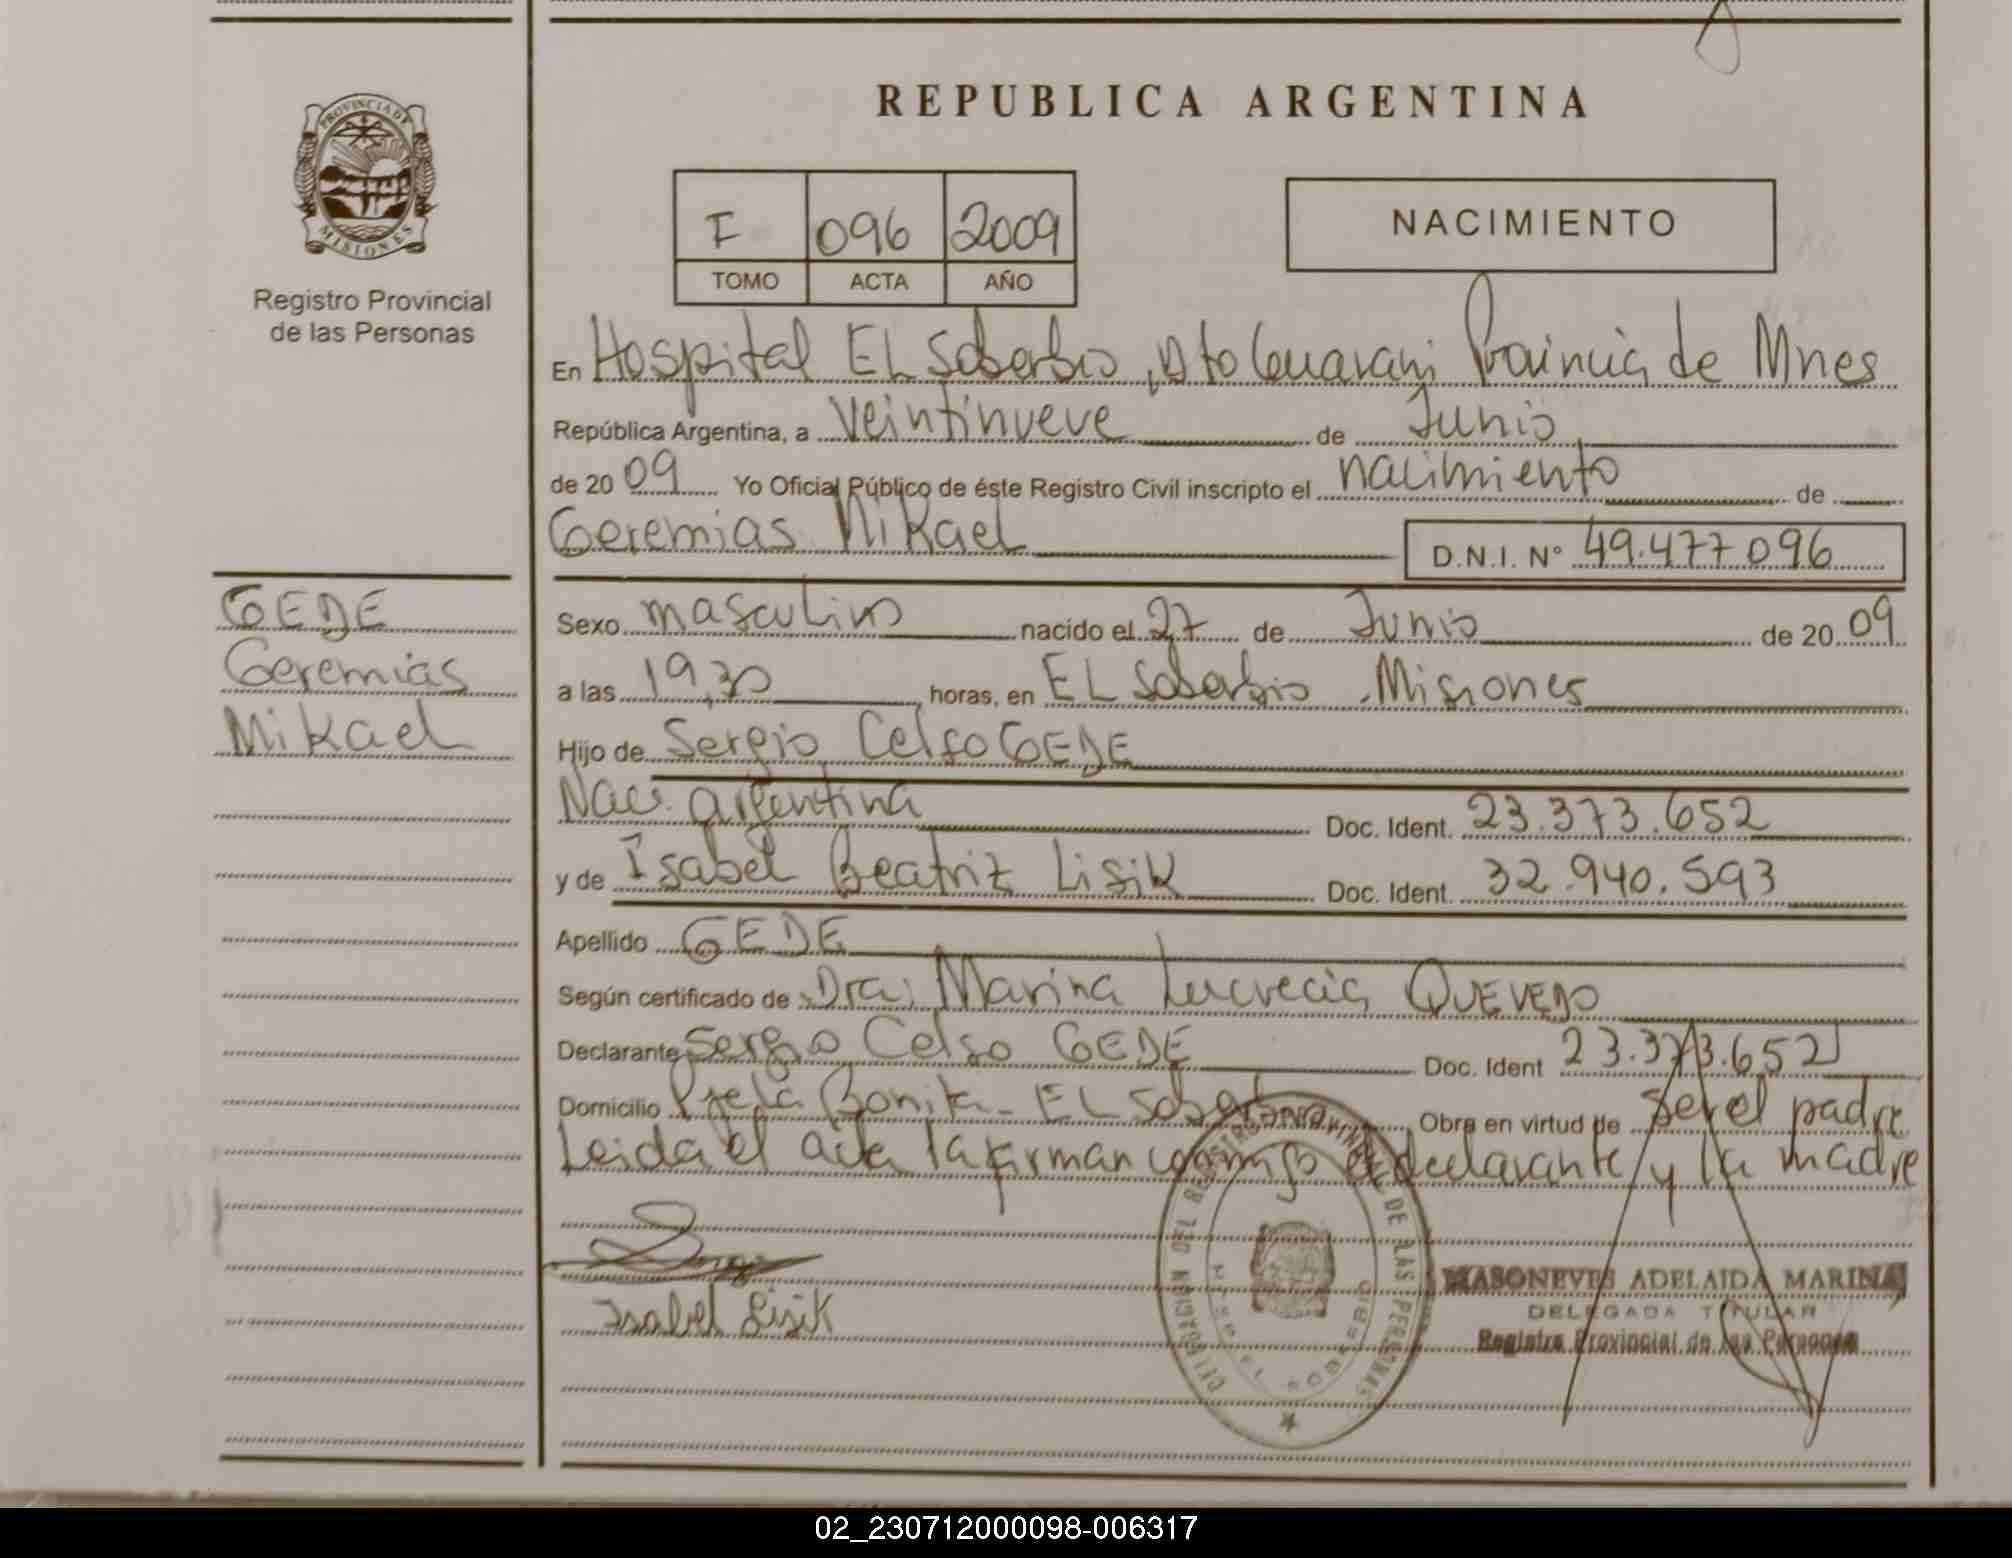 REPUBLICA ARGENTINA
PROVINCIA DE MISIONES
Registro Provincial
de las Personas
I 096 2009
TOMO ACTA AÑO
NACIMIENTO
En Hospital EL Soberbio, Dto Guarani Provincia de Mnes
República Argentina, a veintinueve de Junio
de 2009 Yo Oficial Público de éste Registro Civil inscripto el nacimiento de
Geremias Mikael D.N.I. Nº 49.477096
GEDE
Geremias
Mikael
Sexo masculino nacido el 27 de Junio de 2009
a las 19,30 horas, en EL Soberbio, Misiones
Hijo de Sergio Celso GEDE
Nac. argentina Doc. Ident. 23.373.652
y de Isabel Beatriz Lisik Doc. Ident. 32.940.593
Apellido GEDE
Según certificado de Dra. Marina Lucrecia QUEVEDO
Declarante Sergio Celso GEDE Doc. Ident 23.373.652
Domicilio Pje La Bonita - EL Soberbio Obra en virtud de ser el padre
Leida el acta la firman conmigo el declarante y la madre
Isabel Lisik
DELEGACION DEL REGISTRO PROVINCIAL DE LAS PERSONAS
SOBERBIO
MASONEVES ADELAIDA MARINA
DELEGADA TITULAR
Registro Provincial de las Personas
02_230712000098-006317